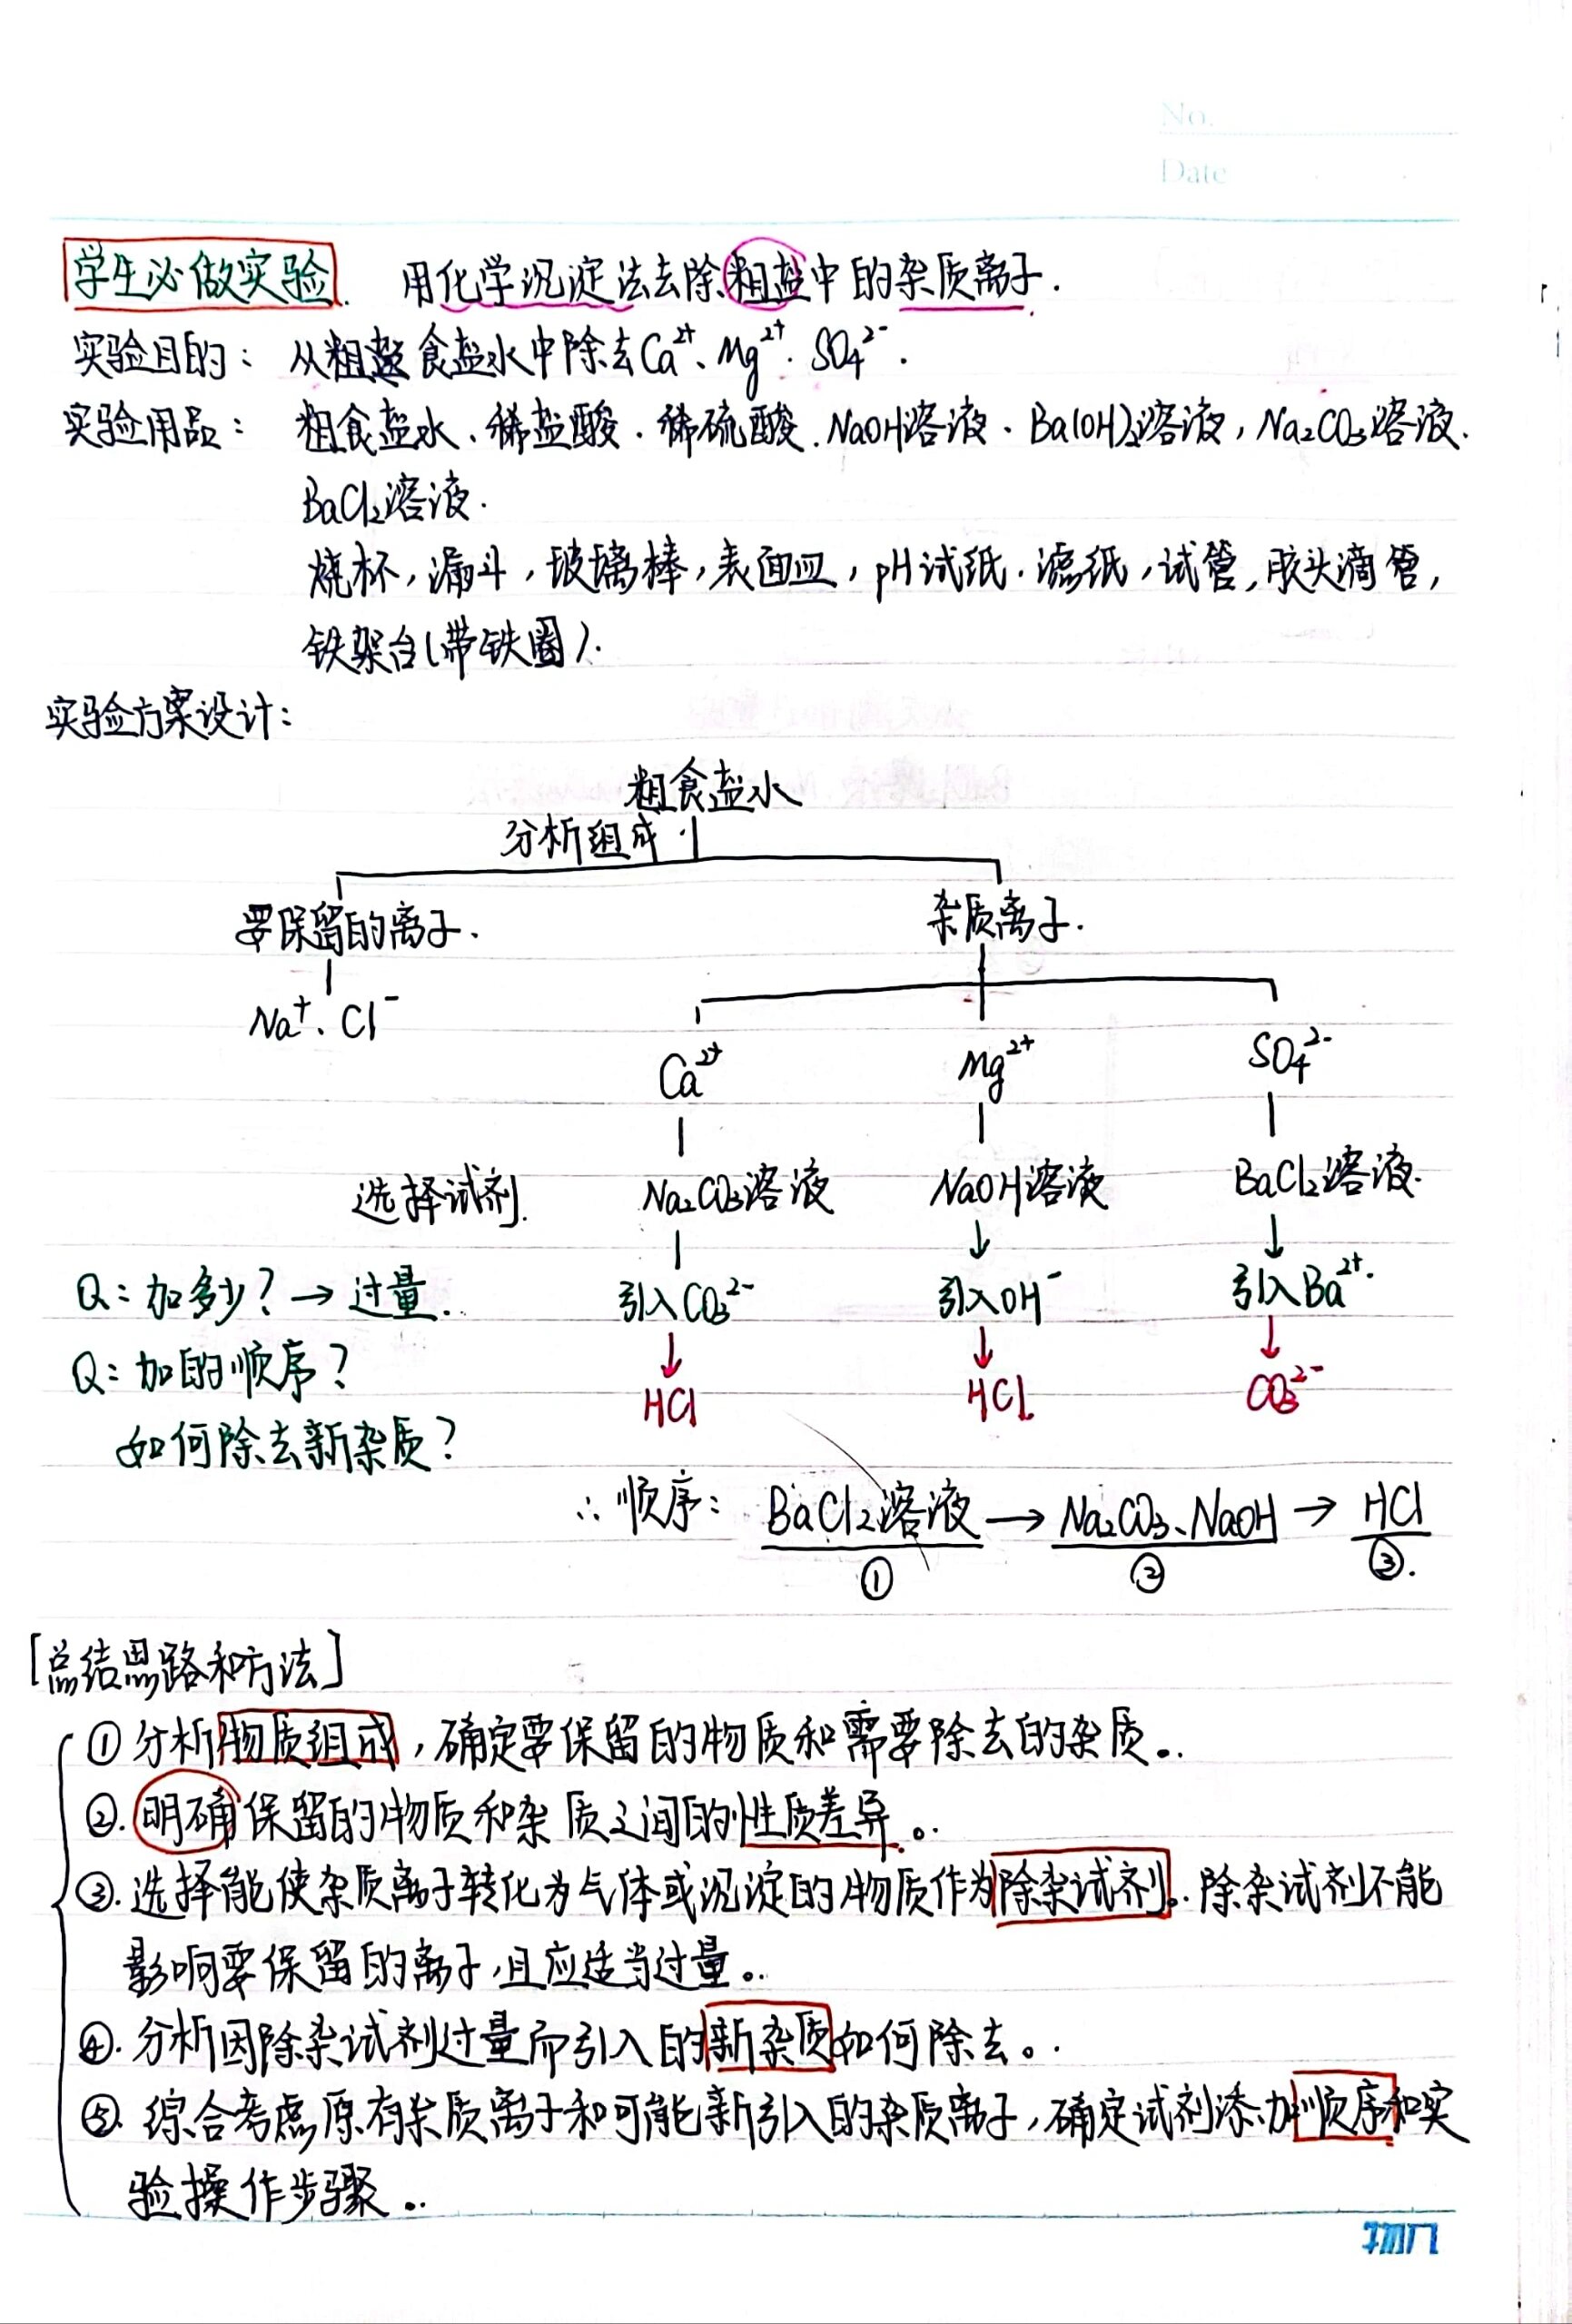 No.
Date
学生必做实验. 用化学沉淀法去除粗盐中的杂质离子.
实验目的: 从粗盐食盐水中除去Ca²⁺、Mg²⁺. SO₄²⁻.
实验用品: 粗食盐水、稀盐酸. 稀硫酸. NaOH溶液. Ba(OH)₂溶液, Na₂CO₃溶液.
BaCl₂溶液.
烧杯, 漏斗, 玻璃棒, 表面皿, pH试纸. 滤纸, 试管, 胶头滴管,
铁架台(带铁圈).
实验方案设计:
粗食盐水
分析组成
要保留的离子. 杂质离子.
Na⁺、Cl⁻
Ca²⁺ Mg²⁺ SO₄²⁻
选择试剂. Na₂CO₃溶液 NaOH溶液 BaCl₂溶液.
Q: 加多少? → 过量. 引入CO₃²⁻ 引入OH⁻ 引入Ba²⁺.
Q: 加的顺序? HCl HCl. CO₃²⁻
如何除去新杂质?
∴ 顺序: BaCl₂溶液 → Na₂CO₃、NaOH → HCl
① ② ③.
[总结思路和方法]
① 分析物质组成, 确定要保留的物质和需要除去的杂质。.
②. 明确保留的物质和杂质之间的性质差异。.
③. 选择能使杂质离子转化为气体或沉淀的物质作为除杂试剂。. 除杂试剂不能
影响要保留的离子, 且应适当过量。.
④. 分析因除杂试剂过量而引入的新杂质如何除去。.
⑤. 综合考虑原有杂质离子和可能新引入的杂质离子, 确定试剂添加顺序和实
验操作步骤。.